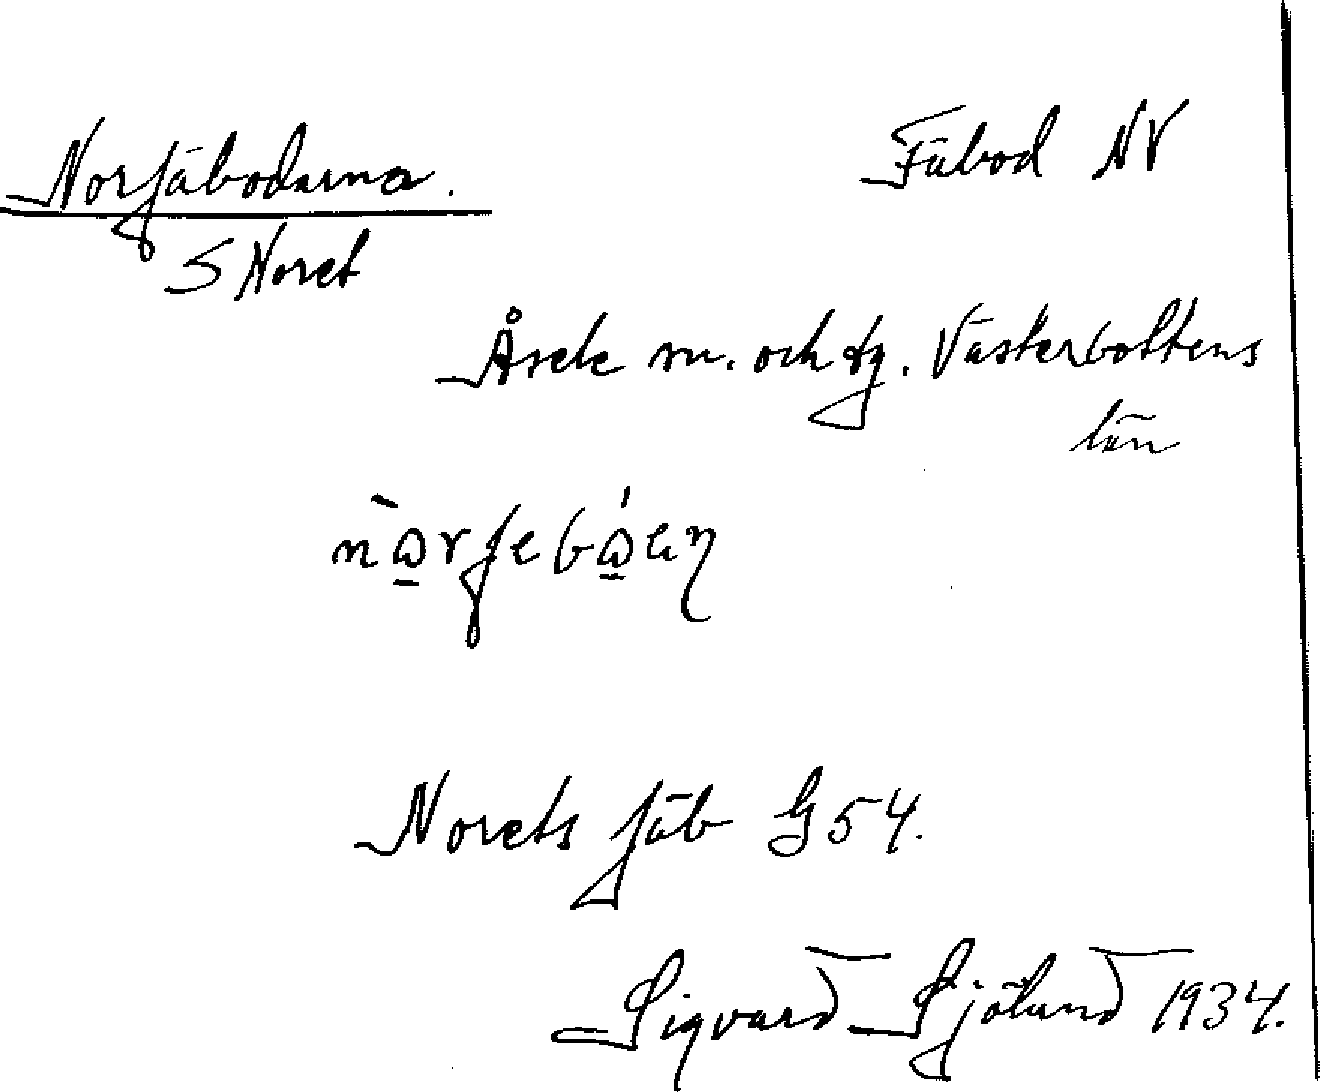 Norfäbodarna.
Fäbod NV
S Noret
Åsele sn. och tg. Västerbottens
län
Norets fäb G54.
Sigvard Sjölund 1934.